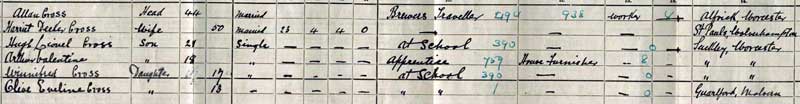 Allan Cross Head 44 Married Brewers Traveller 494 938 worker Alfrick, Worcester
Harriet Cross Wife 50 Married 23 4 4 0 — — — — St Pauls, Wolverhampton
Hugh Lionel Cross Son 21 Single at School 390 — — 0 Suckley, Worcester
Arthur Valentine " 18 Apprentice 729 House Furnisher 8 " "
Winnifred Cross Daughter 17 at School 390 — 0 " "
Clive Eveline Cross " 13 — " " 1 — 0 Guarlford, Malvern